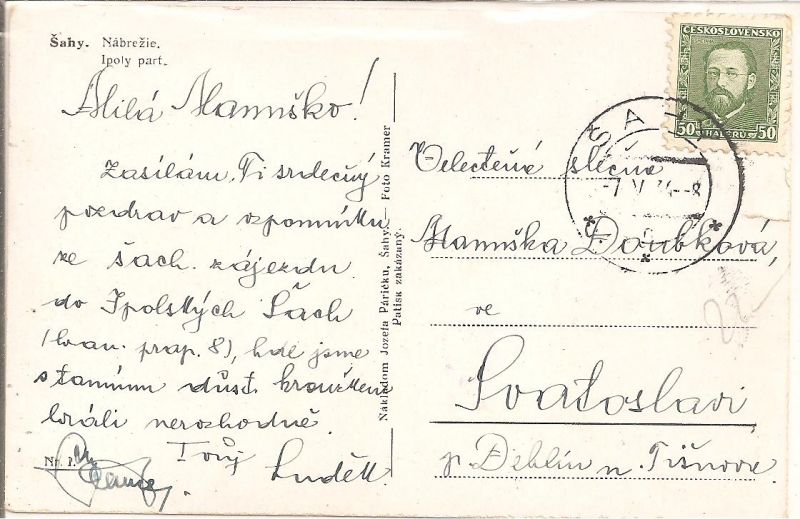 Šahy. Nábrežie.
Ipoly part.
Milá Hanuško!
Zasílám Ti srdečný
pozdrav a vzpomínku
ze šach. zájezdu
do Ipolských Šach
(han. prap. 8), kde jsme
s tamním důst. kroužkem
hráli nerozhodně.
Tvůj
Luděk
Nr. 1.
Nákladom Jozefa Páričku, Šahy. — Foto Kramer
Patisk zakázaný.
ČESKOSLOVENSKO
50 HALÉŘŮ 50
ŠAHY
-7.V.34.-8
Velectěné slečně
Hanuška Doubková,
ve
Svatoslavi
p. Deblín u Tišnova